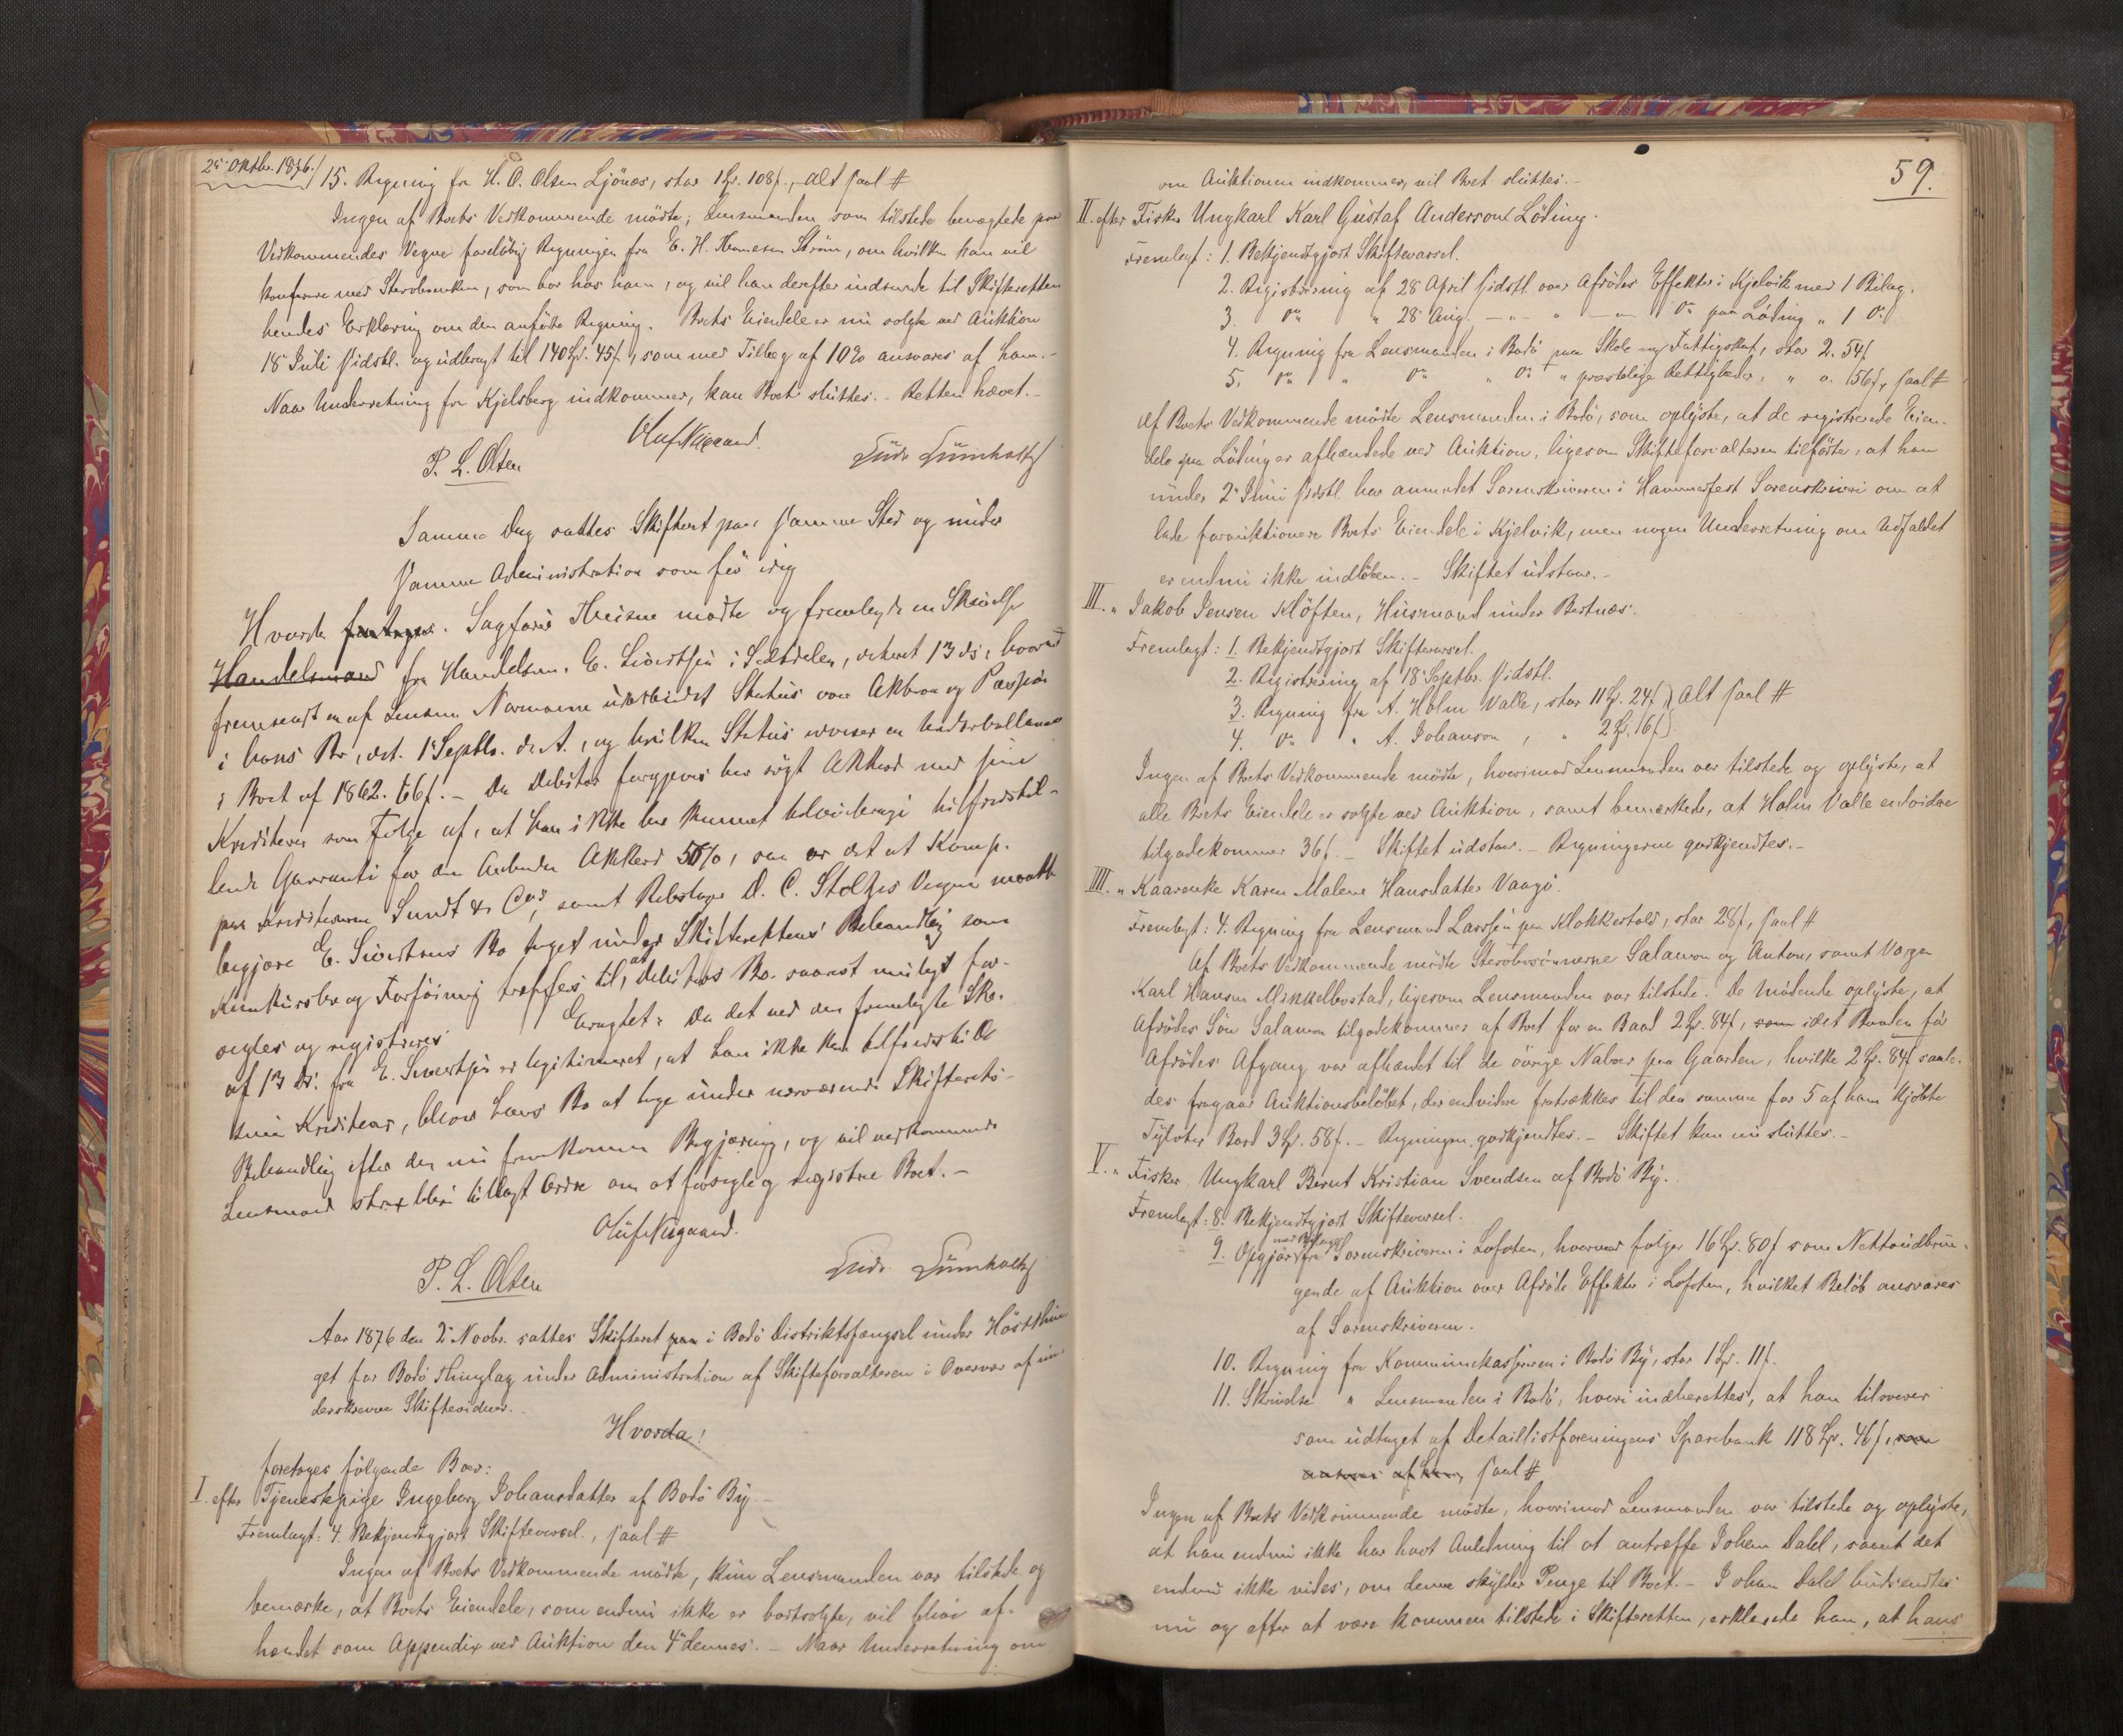 25 Oktbr. 1876.
15. Regning fra H. O. Olsen Ljönes, stor 1 Sp. 108 ſ., alt saal #
Ingen af Boets Vedkommende mödte; Lensmanden som tilstede benægtede paa
Vedkommendes Vegne foreløbig Regningen fra E. H. Ström, om hvilken han vil
konferere med Sterboenken, som bor hos ham, og vil han derefter indsende til Skifteretten
hendes Erklæring om den anførte Regning. Boets Eiendele er nu solgte ved Auktion
18 Juli sidstl. og udbragt til 140 Sp. 45 ſ, som med Tillæg af 10% ansvares af ham.-
Naar Underretning fra Kjelsberg indkommer, kan Boet sluttes. - Retten hævet.-
P. L. Olsen
Samme Dag sattes Skifteret paa samme Sted og under
samme Administration som før i dag
Hvorda foretoges. Sagfører mödte og fremlagde en Skrivelse
Handelsmand fra Handelsm. E. Sivertsen i Saltdalen, dateret 13 ds., hvorved
fremsendt en af Lensm. Normann udarbeidet Status over Aktiva og Passiva
i hans Bo, dat. 1 Septbr. d. A., og hvilken Status udviser en Underballance
i Boet af 1862. 66 ſ. - Da Debitor forgjæves har søgt Akkord med sine
Kreditorer som Følge af, at han ikke har kunnet tilveiebringe tilfredsstil-
lende Garranti for den Akkord 50%, saa er det at Komp.
paa Kreditorerne Sundt & Co's, samt Rebslager D. C. Stoltzes Vegne maatte
begjære E. Sivertsens Bo taget under Skifterettens Behandling som
Konkursbo og Forføining træffes til, at Debitors Bo snarest muligt for-
segles og registreres
Eragtet: Da det ved den fremlagte Skr.
af 13 ds. fra E. Sivertsen er legitimeret, at han ikke kan tilfredsstille
sine Kreditorer, bliver hans Bo at tage under nærværende Skifterets
Behandling efter den nu fremkomne Begjæring, og vil vedkommende
Lensmand strax blive tillagt Ordre om at forsegle og registrere Boet.-
P. L. Olsen
Aar 1876 den 2 Novbr. sattes Skifteret paa i Bodö Distriktsfængsel under Höstthin-
get for Bodö Thinglag under Administration af Skifteforvalteren i Overvær af un-
derskrevne Skiftevidner.
Hvorda:
foretoges fölgende Boer:
I. efter Tjenestepige Ingeborg Johansdatter af Bodö By.-
Fremlagt: 4. Bekjendtgjort Skiftevarsel., saal #
Ingen af Boets Vedkommende mödte, kun Lensmanden var tilstede og
bemærke, at Boets Eiendele, som endnu ikke er bortsolgte, vil blive af-
hændet som Appendix ved Auktion den 4 dennes. - Naar Underretning om
59.
om Auktionen indkommer, vil Boet sluttes.-
II. efter Fisker Ungkarl Karl Gustaf Andersont Löding.
Fremlagt: 1. Bekjendtgjort Skiftevarsel.
2. Registrering af 28 April sidstl. over Afdödes Effekter i Kjelvik med 1 Bilag.
3. Do " 28 Aug. - " - " - Do paa Löding " 1 Do
4. Regning fra Lensmanden i Bodö paa Skole og Fattigskat, stor 2. 54 ſ
5. Do " Do " Do " præstelige Rettigheder, " o. 156 ſ, saal #
Af Boets Vedkommende mödte Lensmanden i Bodö, som oplyste, at de registrerede Eien-
dele paa Löding er afhændede ved Auktion, ligesom Skifteforvalteren tilförte, at han
under 2 Juni sidstl. har anmodet Sorenskriveren i Hammerfest Sorenskriveri om at
lade forauktionere Boets Eiendele i Kjelvik, men nogen Underretning om Udfaldet
er endnu ikke indlöben. - Skiftet udstaar.-
III. " Jakob Jensen Klöften, Husmand under Bertnæs.
Fremlagt: 1. Bekjendtgjort Skiftevarsel.
2. Registrering af 18 Septbr. sidstl.
3. Regning fra A. Holm Valle, stor 11 Sp. 24 ſ } alt saal #
4. Do " A. Johanson, " 2 Sp. 16 ſ }
Ingen af Boets Vedkommende mödte, hvorimod Lensmanden var tilstede og oplyste, at
alle Boets Eiendele er solgte ved Auktion, samt bemærkede, at Holm Valle endvidere
tilgodekommer 36 ſ. - Skiftet udstaar. - Regningerne godkjendtes.-
IIII. " Kaarenke Karen Malene Hansdatter Vaagö.
Fremlagt: 4. Regning fra Lensmand Larssen paa Klokkertold, stor 28 ſ, saal #
Af Boets Vedkommende mödte Sterbosönnerne Salamon og Anton, samt Værgen
Karl Hansen Mikkelbostad, ligesom Lensmanden var tilstede. De Mödende oplyste, at
Afdödes Sön Salamon tilgodekommer af Boet for en Baad 2 Sp. 84 ſ, som idet Baaden för
Afdödes Afgang var afhændet til de övrige Naboer paa Gaarden, hvilke 2 Sp. 84 ſ saale-
des fragaar Auktionsbelöbet, der endvidere fratrækkes til den samme for 5 af ham kjöbte
Tylvter Bord 3 Sp. 58 ſ. - Regningen godkjendtes. - Skiftet kan nu sluttes.-
V. " Fisker, Ungkarl Bernt Kristian Svendsen af Bodö By.
Fremlagt: 8. Bekjendtgjort Skiftevarsel.
9. Opgjör med Bilage fra Sorenskriveren i Lofoten, hvorved fölger 16 Sp. 80 ſ som Nettoudbrin-
gende af Auktion over Afdöde Effekter i Lofoten, hvilket Belöb ansvares
af Sorenskriveren.
10. Regning fra Kommunekassereren i Bodö By, stor 1 Sp. 11 ſ.
11. Skrivelse " Lensmanden i Bodö, hvori indberettes, at han tilsvarer
som udtaget af Detaillistforeningens Sparebank 118 Sp. 46 ſ, som
ansvares af ham, saal #
Ingen af Boets Vedkommende mödte, hvorimod Lensmanden var tilstede og oplyste,
at han endnu ikke har havt Anledning til at antræffe Johan Dahl, samt det
endnu ikke vides, om denne skylder Penge til Boet. - Johan Dahl budsendtes
nu og efter at være kommen tilstede i Skifteretten, erklærede han, at hans